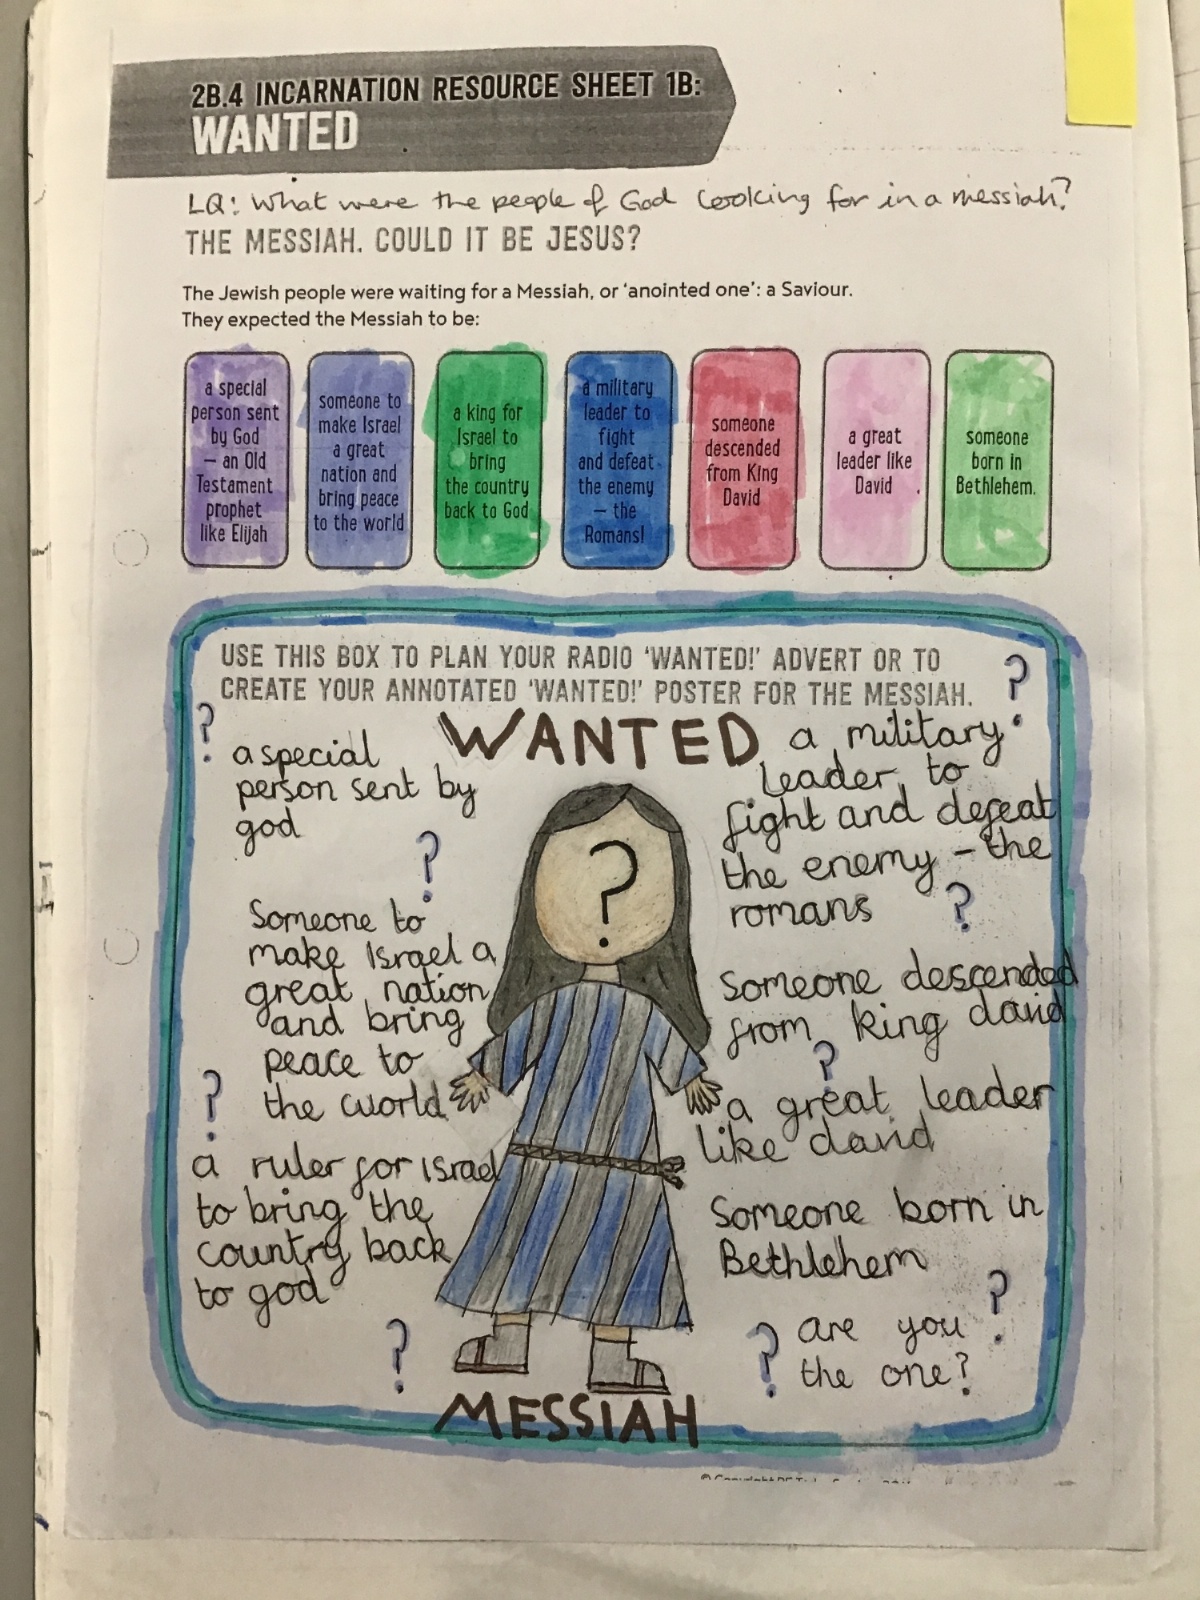 2B.4 INCARNATION RESOURCE SHEET 1B:
WANTED
LQ: What were the people of God looking for in a messiah?
THE MESSIAH. COULD IT BE JESUS?
The Jewish people were waiting for a Messiah, or ‘anointed one’: a Saviour.
They expected the Messiah to be:
a special
person sent
by God
– an Old
Testament
prophet
like Elijah
someone to
make Israel
a great
nation and
bring peace
to the world
a king for
Israel to
bring
the country
back to God
a military
leader to
fight
and defeat
the enemy
– the
Romans!
someone
descended
from King
David
a great
leader like
David
someone
born in
Bethlehem.
USE THIS BOX TO PLAN YOUR RADIO ‘WANTED!’ ADVERT OR TO
CREATE YOUR ANNOTATED ‘WANTED!’ POSTER FOR THE MESSIAH.
?
?
WANTED
a special
person sent by
god
?
Someone to
make Israel a
great nation
and bring
peace to
the world
?
a ruler for Israel
to bring the
country back
to god
?
?
a military
leader to
fight and defeat
the enemy – the
romans
?
Someone descended
from king david
?
a great leader
like david
Someone born in
Bethlehem
?
?
are you
the one?
MESSIAH